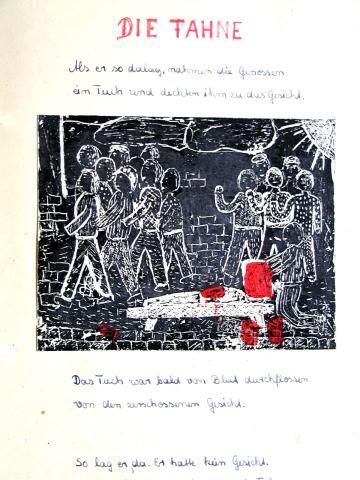 DIE FAHNE
Als er so dalag, nahmen die Genossen
ein Tuch und deckten ihm zu das Gesicht.
Das Tuch war bald von Blut durchflossen
von den zerschossenen Gesicht.
So lag er da. Er hatte kein Gesicht.